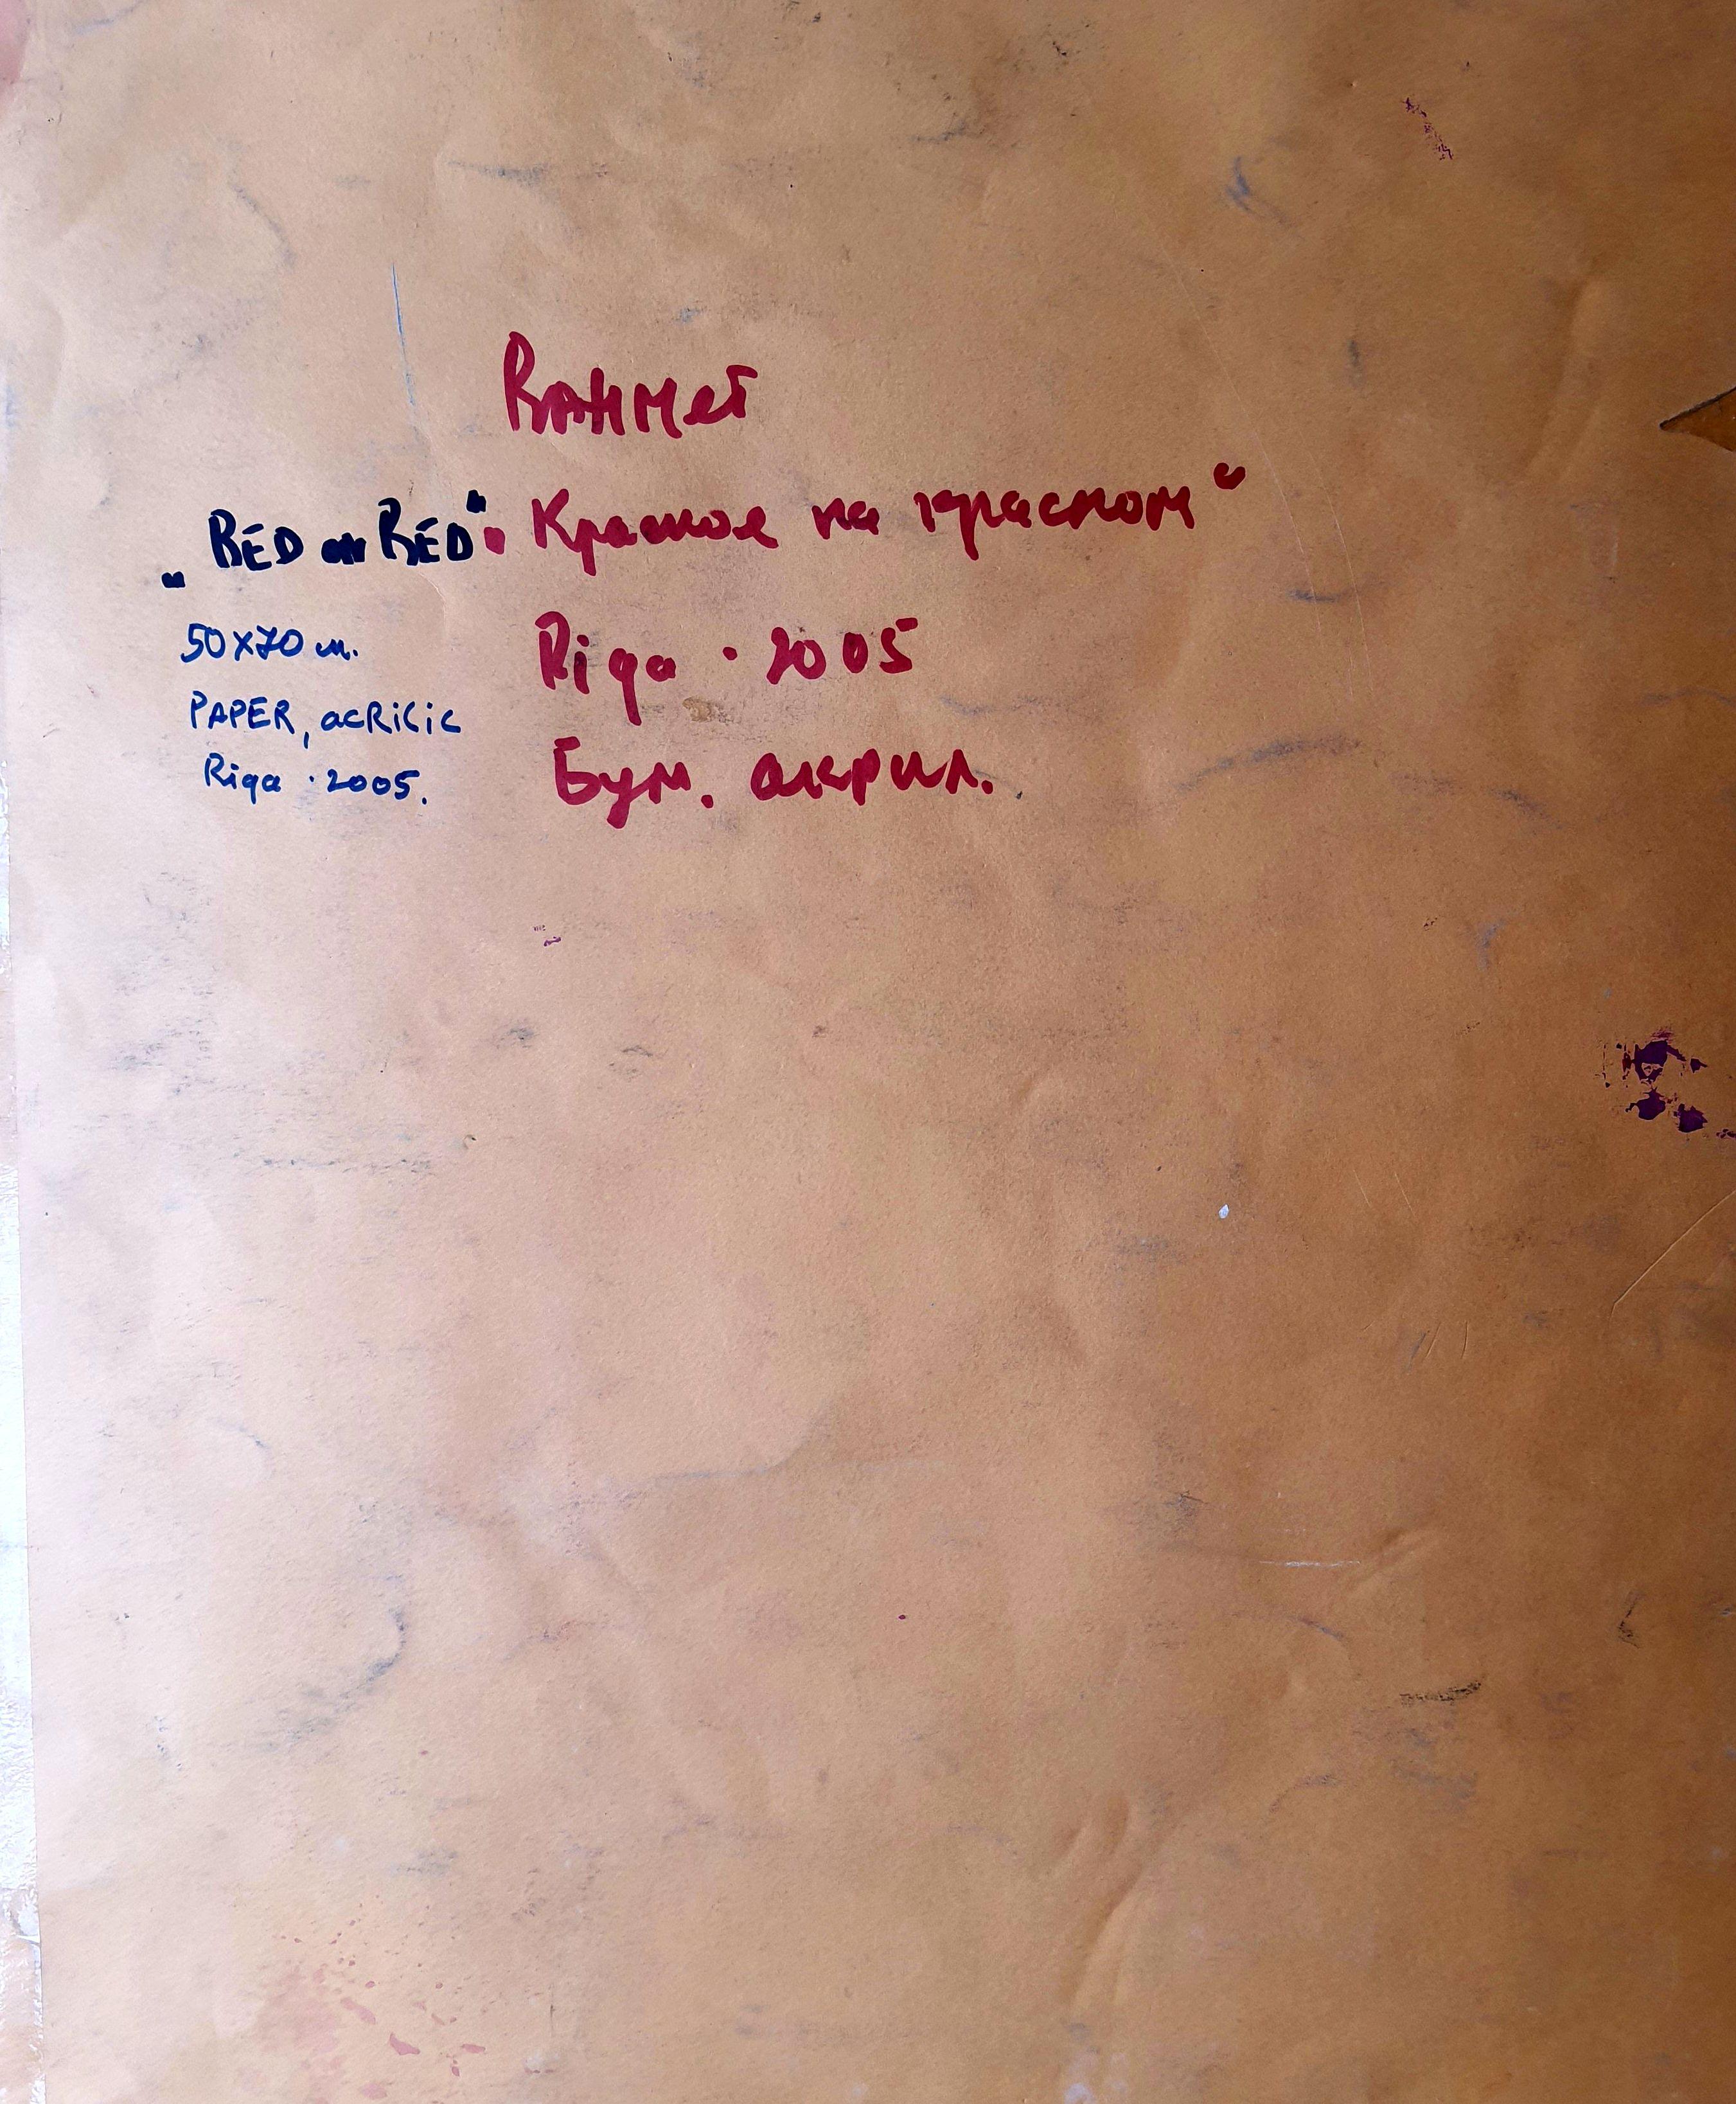 RAHMET
„RED on RED“
"Красное на красном"
50x70 см.
Riga · 2005
PAPER, acRilic
Бум. акрил.
Riga · 2005.